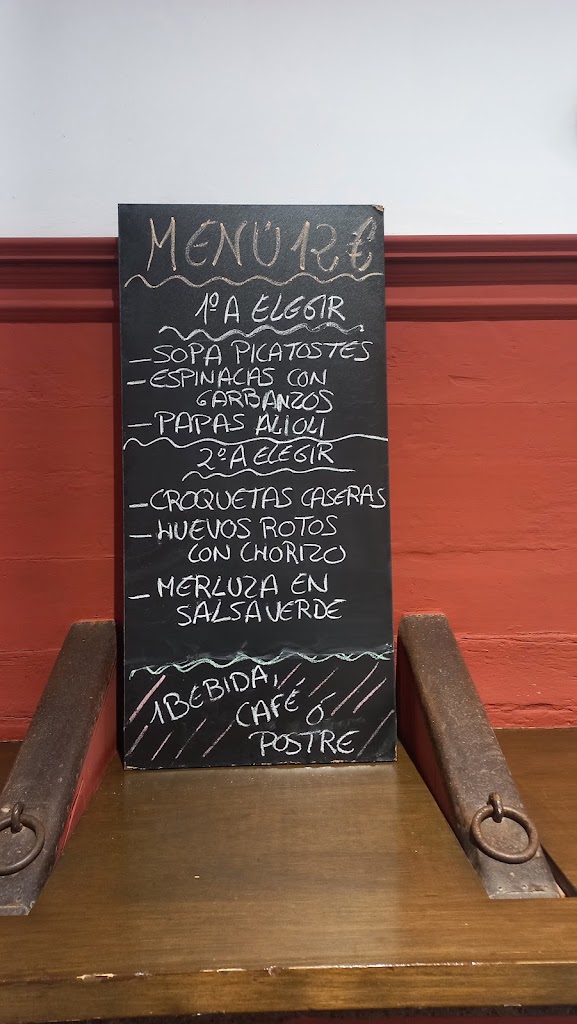 MENÚ 12€
1º A ELEGIR
– SOPA PICATOSTES
– ESPINACAS CON
GARBANZOS
– PAPAS ALIOLI
2º A ELEGIR
– CROQUETAS CASERAS
– HUEVOS ROTOS
CON CHORIZO
– MERLUZA EN
SALSA VERDE
1 BEBIDA,
CAFÉ Ó
POSTRE